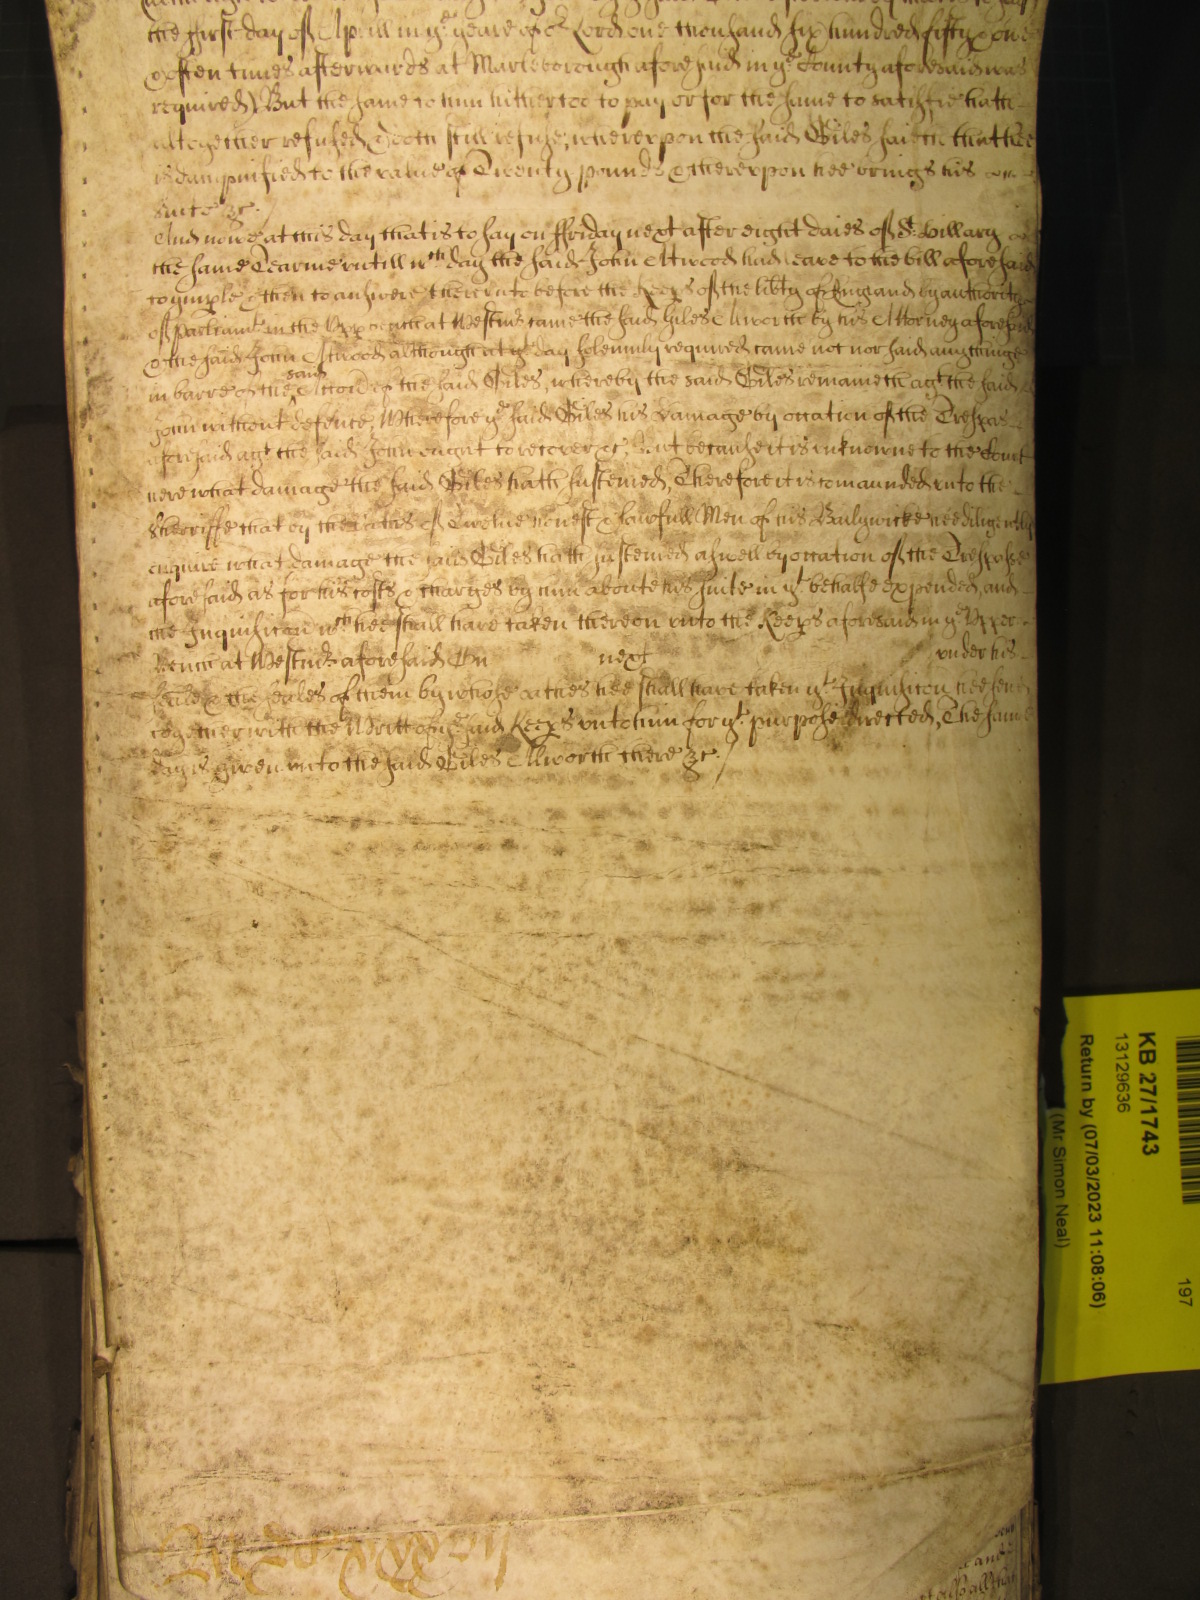 the first day of Aprill in ye yeare of or Lord one thousand six hundred fifty & one
& often times afterwards at Marleborough aforesaid in ye County aforesaid was
required, But the same to him hithertoe to pay or for the same to satisfie hath
altogether refused & doth still refuse, wherevpon the said Giles saieth that hee
is dampnified to the value of Twenty pounds & therevpon hee brings his
suite &c.
And nowe at this day that is to say on ffriday next after eight daies of St. Hillary
the same Tearme vntill wch day the said John Atwood had leave to the bill aforesaid
to imple & then to answere therevnto before the Keeps of the libty of England by authoritie
of Parliamt in the Vpper bench at Westmr came the said Giles Alworth by his Attorney aforesaid
& the said John Atwood although at yt day solemnly required came not nor said anythinge
in barre of the said Accon of the said Giles, whereby the said Giles remaineth agt the said
John without defence, Wherefore ye said Giles his damage by occation of the Trespas
aforesaid agt the said John ought to recover &c, But because it is vnknowne to the Court
here what damage the said Giles hath susteined, Therefore it is comaunded vnto the
Sherriffe that by the oathes of Twelue honest & lawfull Men of his Baylywicke hee diligently
enquire what damage the said Giles hath susteined aswell by occation of the Trespasse
aforesaid as for his costs & charges by him aboute his suite in yt behalfe expended, and
the Inquisicon wch hee shall have taken thereon vnto the Keeps aforesaid in ye Vpper
bench at Westmr aforesaid On next vnder his
seale & the seales of them by whose oathes hee shall have taken yt Inquisicon hee send
together with the Writt of ye said Keeps vnto him for yt purpose directed, The same
day is given vnto the said Giles Alworth there &c.
KB 27/1743
13129636
Return by (07/03/2023 11:08:06)
(Mr Simon Neal)
197